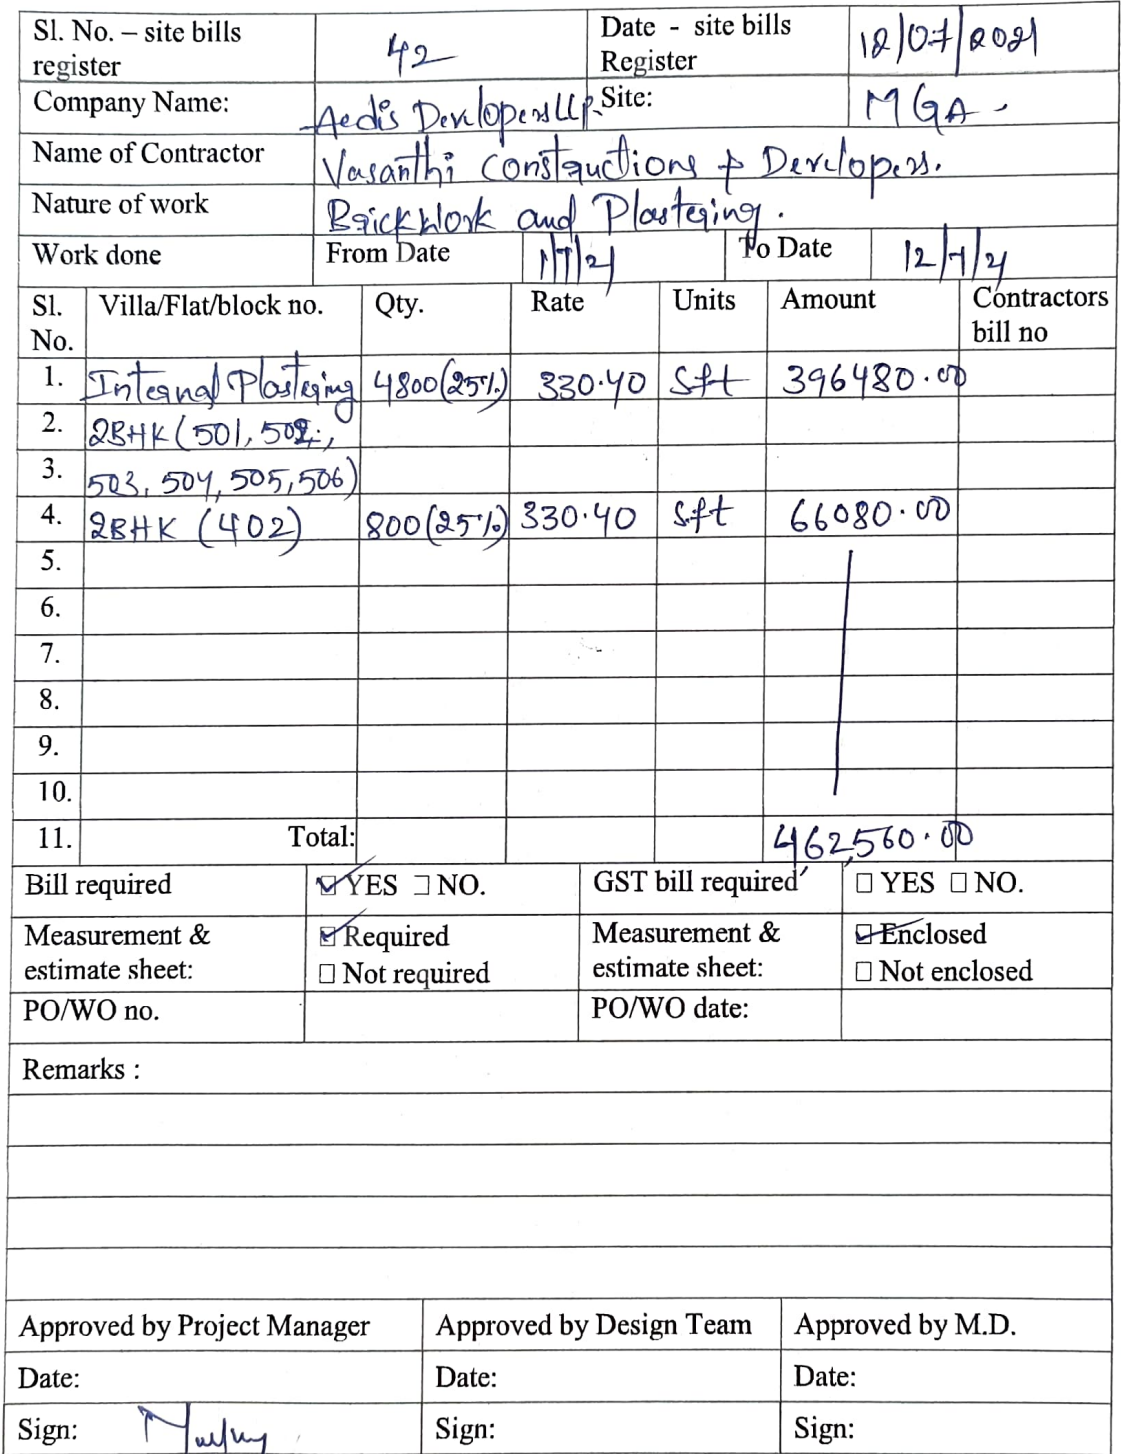 Sl. No. – site bills register 42 Date - site bills Register 12/07/2021
Company Name: Aedis Developers LLP. Site: MGA -
Name of Contractor Vasanthi Constructions & Developers.
Nature of work Brickwork and Plastering.
Work done From Date 1/7/21 To Date 12/7/21
Sl. No. Villa/Flat/block no. Qty. Rate Units Amount Contractors bill no
1. Internal Plastering 4800(25%) 330.40 Sft 396480.00
2. 2BHK (501, 502,
3. 503, 504, 505, 506)
4. 2BHK (402) 800(25%) 330.40 Sft 66080.00
5.
6.
7.
8.
9.
10.
11. Total: 462,560.00
Bill required ☑ YES □ NO. GST bill required □ YES □ NO.
Measurement & estimate sheet: ☑ Required □ Not required Measurement & estimate sheet: ☑ Enclosed □ Not enclosed
PO/WO no. PO/WO date:
Remarks :
Approved by Project Manager Approved by Design Team Approved by M.D.
Date: Date: Date:
Sign: Sign: Sign: